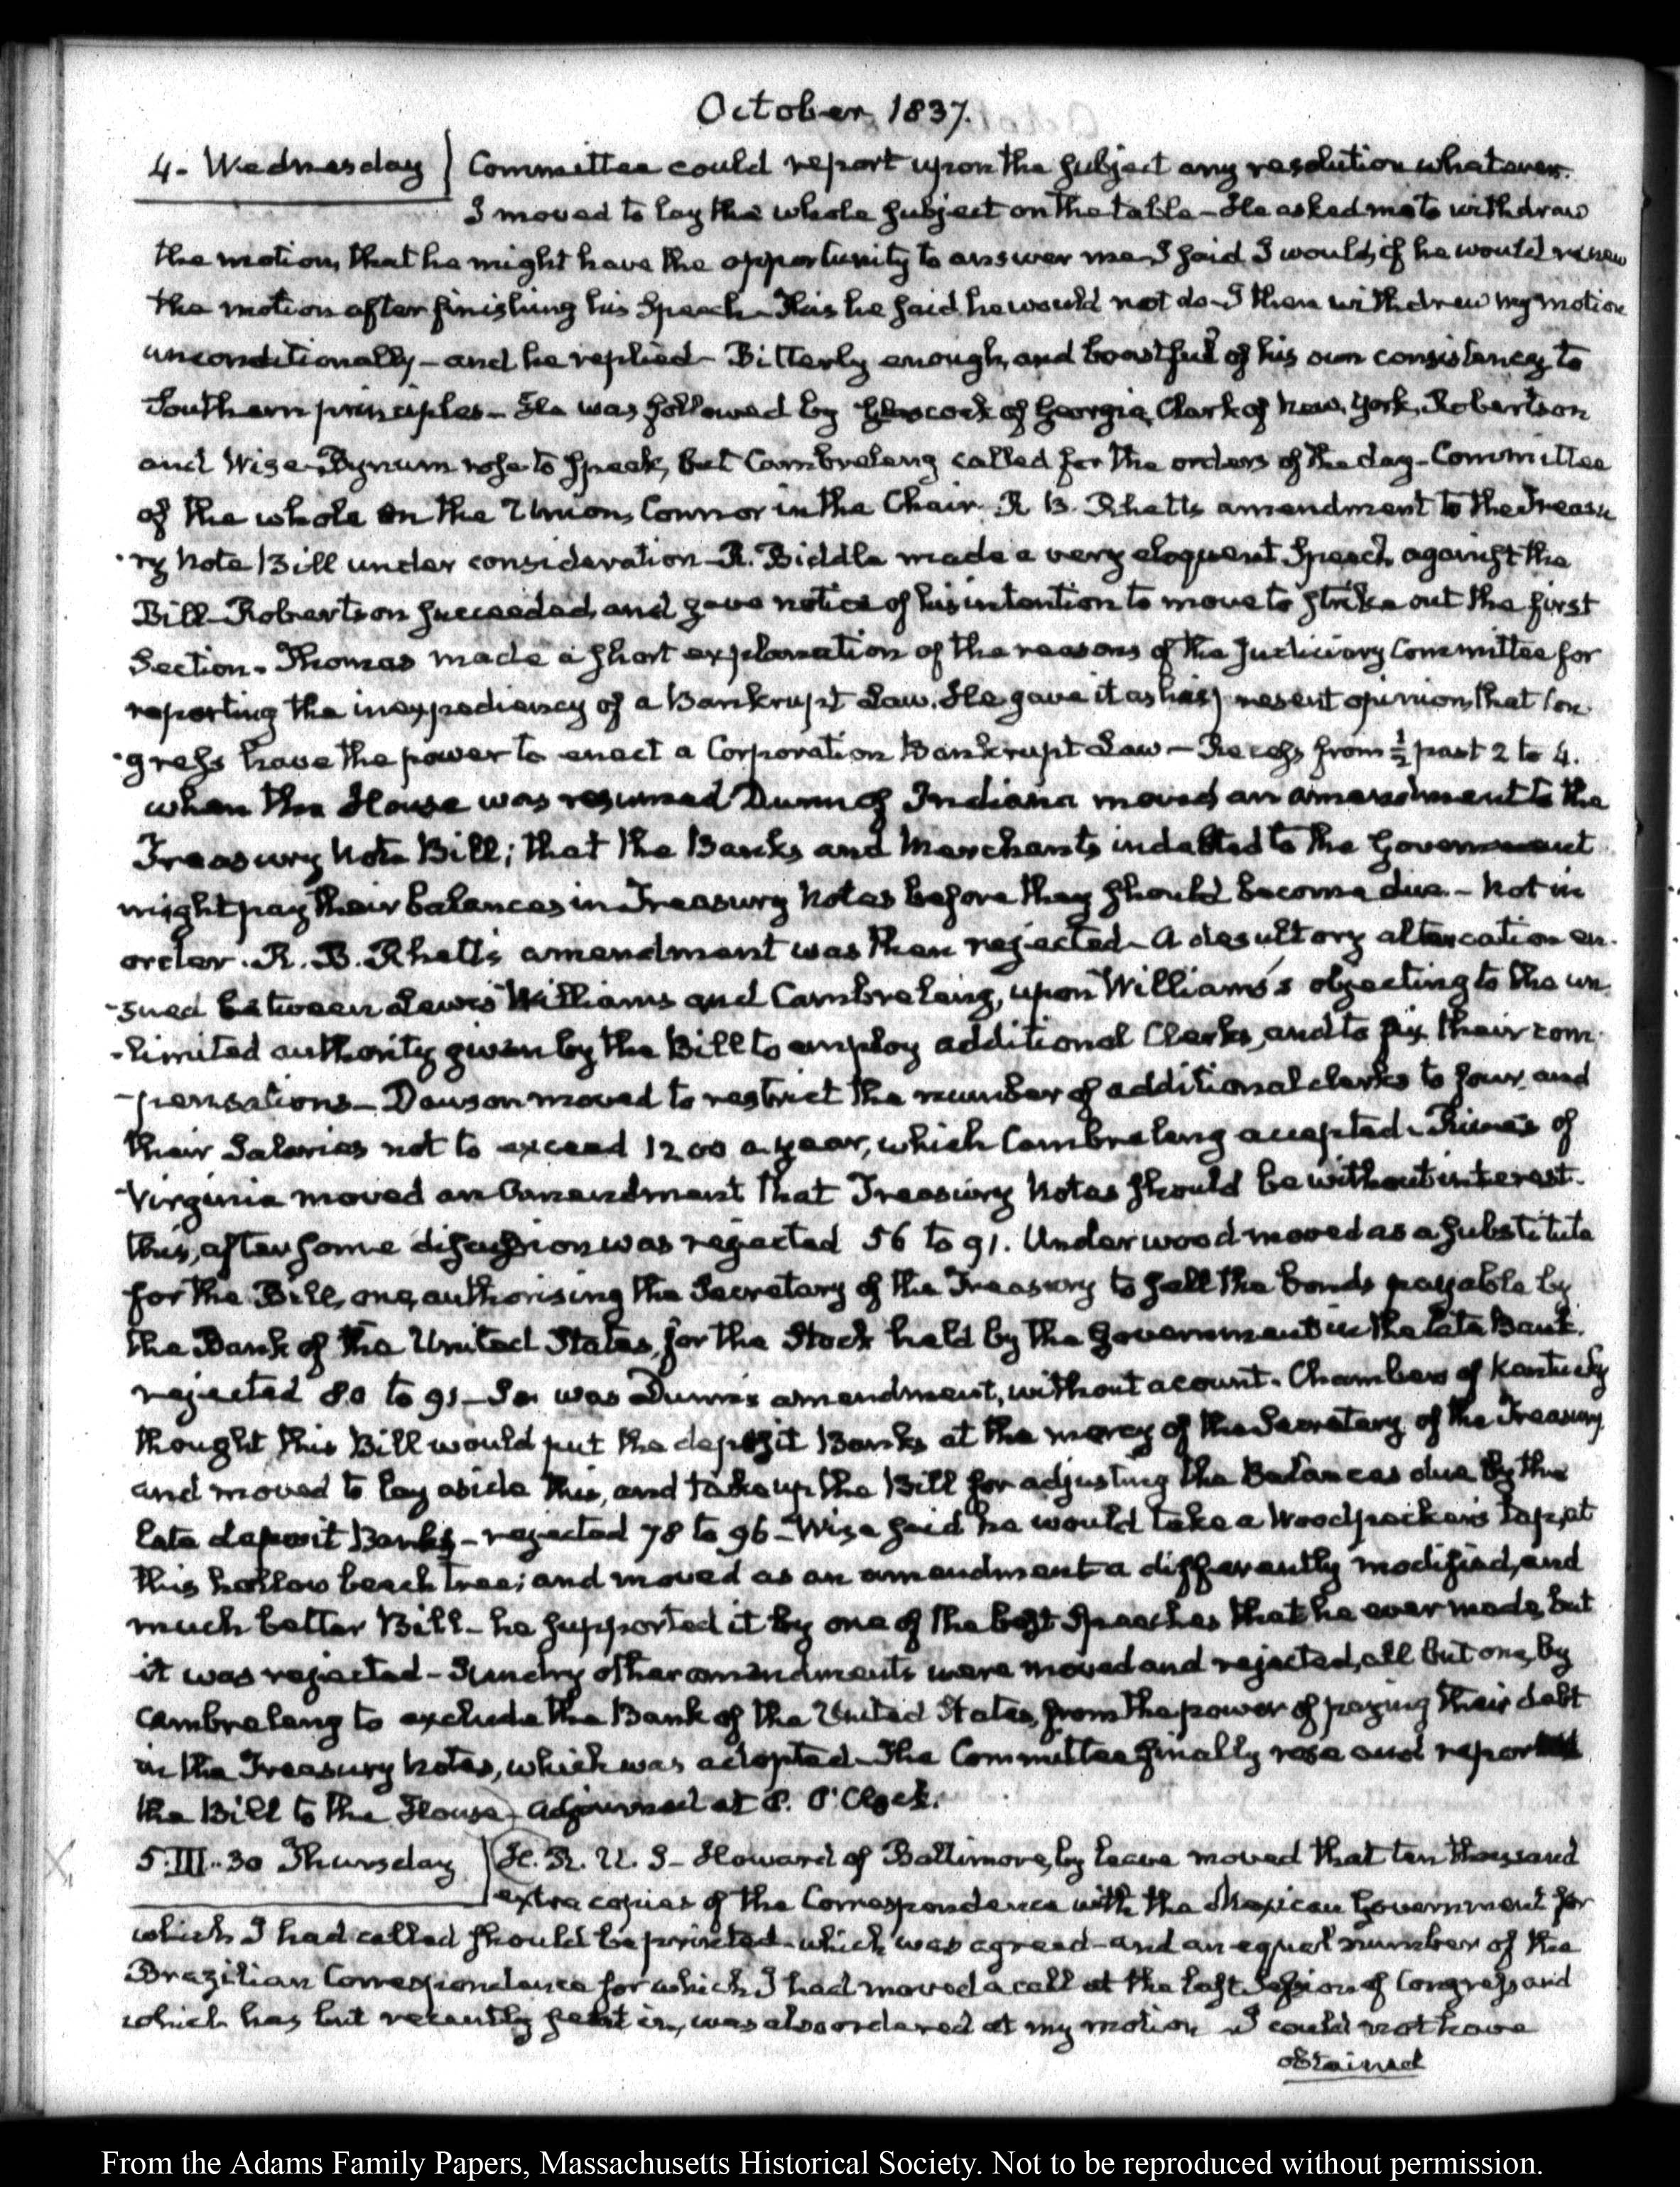 October 1837.
4. Wednesday
Committee could report upon the subject any resolution whatever.
I moved to lay the whole subject on the table - He asked me to withdraw
the motion, that he might have the opportunity to answer me I said I would, if he would renew
the motion after finishing his Speech - This he said he would not do - I then withdrew my motion
unconditionally - and he replied - Bitterly enough, and boastful of his own consistency to
Southern principles - He was followed by Glascock of Georgia, Clark of New York, Robertson
and Wise - Bynum rose to speak, but Cambreleng called for the orders of the day - Committee
of the whole on the Union, Connor in the Chair. R B. Rhett's amendment to the Treasu
-ry Note Bill under consideration - R. Biddle made a very eloquent Speech against the
Bill - Robertson succeeded, and gave notice of his intention to move to strike out the first
Section. Thomas made a short explanation of the reasons of the Judiciary Committee for
reporting the inexpediency of a Bankrupt Law. He gave it as his present opinion, that Con
-gress have the power to enact a Corporation Bankrupt Law - Recess from ½ past 2 to 4.
when the House was resumed Dunn of Indiana moved an amendment to the
Treasury Note Bill; that the Banks and Merchants indebted to the Government
might pay their balances in Treasury Notes before they should become due. - Not in
order. R. B. Rhett's amendment was then rejected - A desultory altercation en-
-sued between Lewis Williams and Cambreleng, upon Williams's objecting to the un-
-limited authority given by the Bill to employ additional Clerks, and to fix their com-
-pensations - Dawson moved to restrict the number of additional clerks to four, and
their Salaries not to exceed 1200 a year, which Cambreleng accepted - of
Virginia moved an amendment that Treasury Notes should be without interest.
this, after some discussion was rejected 56 to 91. Underwood moved as a substitute
for the Bill, one, authorising the Secretary of the Treasury to sell the bonds payable by
the Bank of the United States, for the Stock held by the Government in the late Bank.
rejected 80 to 91 - So was Dunn's amendment, without a count. Chambers of Kentucky
thought this Bill would put the deposit Banks at the mercy of the Secretary of the Treasury
and moved to lay aside this, and take up the Bill for adjusting the Balances due by the
late deposit Banks - rejected 78 to 96 - Wise said he would take a Woodpecker's tap, at
this hollow beech tree; and moved as an amendment a differently modified, and
much better Bill - he supported it by one of the best Speeches that he ever made, but
it was rejected - Sundry other amendments were moved and rejected, all but one, by
Cambreleng to exclude the Bank of the United States, from the power of paying their debt
in the Treasury Notes, which was adopted - The Committee finally rose and reported
the Bill to the House - adjourned at 8. O'Clock.
5. III..30 Thursday
H. R. U. S - Howard of Baltimore, by leave moved that ten thousand
extra copies of the Correspondence with the Mexican Government for
which I had called should be printed - which was agreed - and an equal number of the
Brazilian Correspondence for which I had moved a call at the last Session of Congress and
which has but recently sent in, was also ordered at my motion - I could not have
obtained
From the Adams Family Papers, Massachusetts Historical Society. Not to be reproduced without permission.